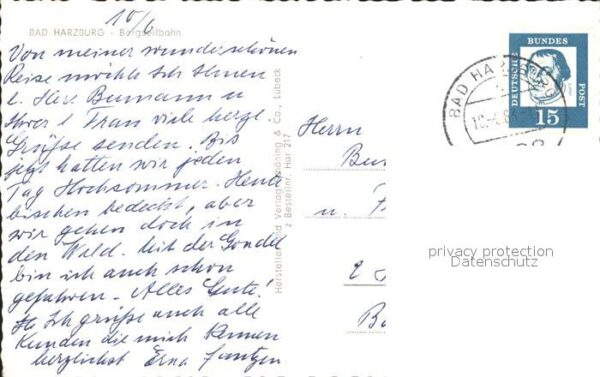 10/6
BAD HARZBURG - Bergseilbahn
Von meiner wunderschönen
Reise möchte ich Ihnen
l. Herr Bumann u
Ihrer l Frau viele herzl.
Grüße senden. Bis
jetzt hatten wir jeden
Tag Hochsommer. Heute
bischen bedeckt, aber
wir gehen doch in
den Wald. Mit der Gondel
bin ich auch schon
gefahren. Alles Gute!
Ich grüße auch alle
Kunden die mich kennen
herzlichst Erna Jantzen
Hersteller und Verlag Schöning & Co., Lübeck
Bestellnr. Har 217
Herrn
u.
DEUTSCHE
BUNDES
POST
15
BAD HARZBURG
privacy protection
Datenschutz